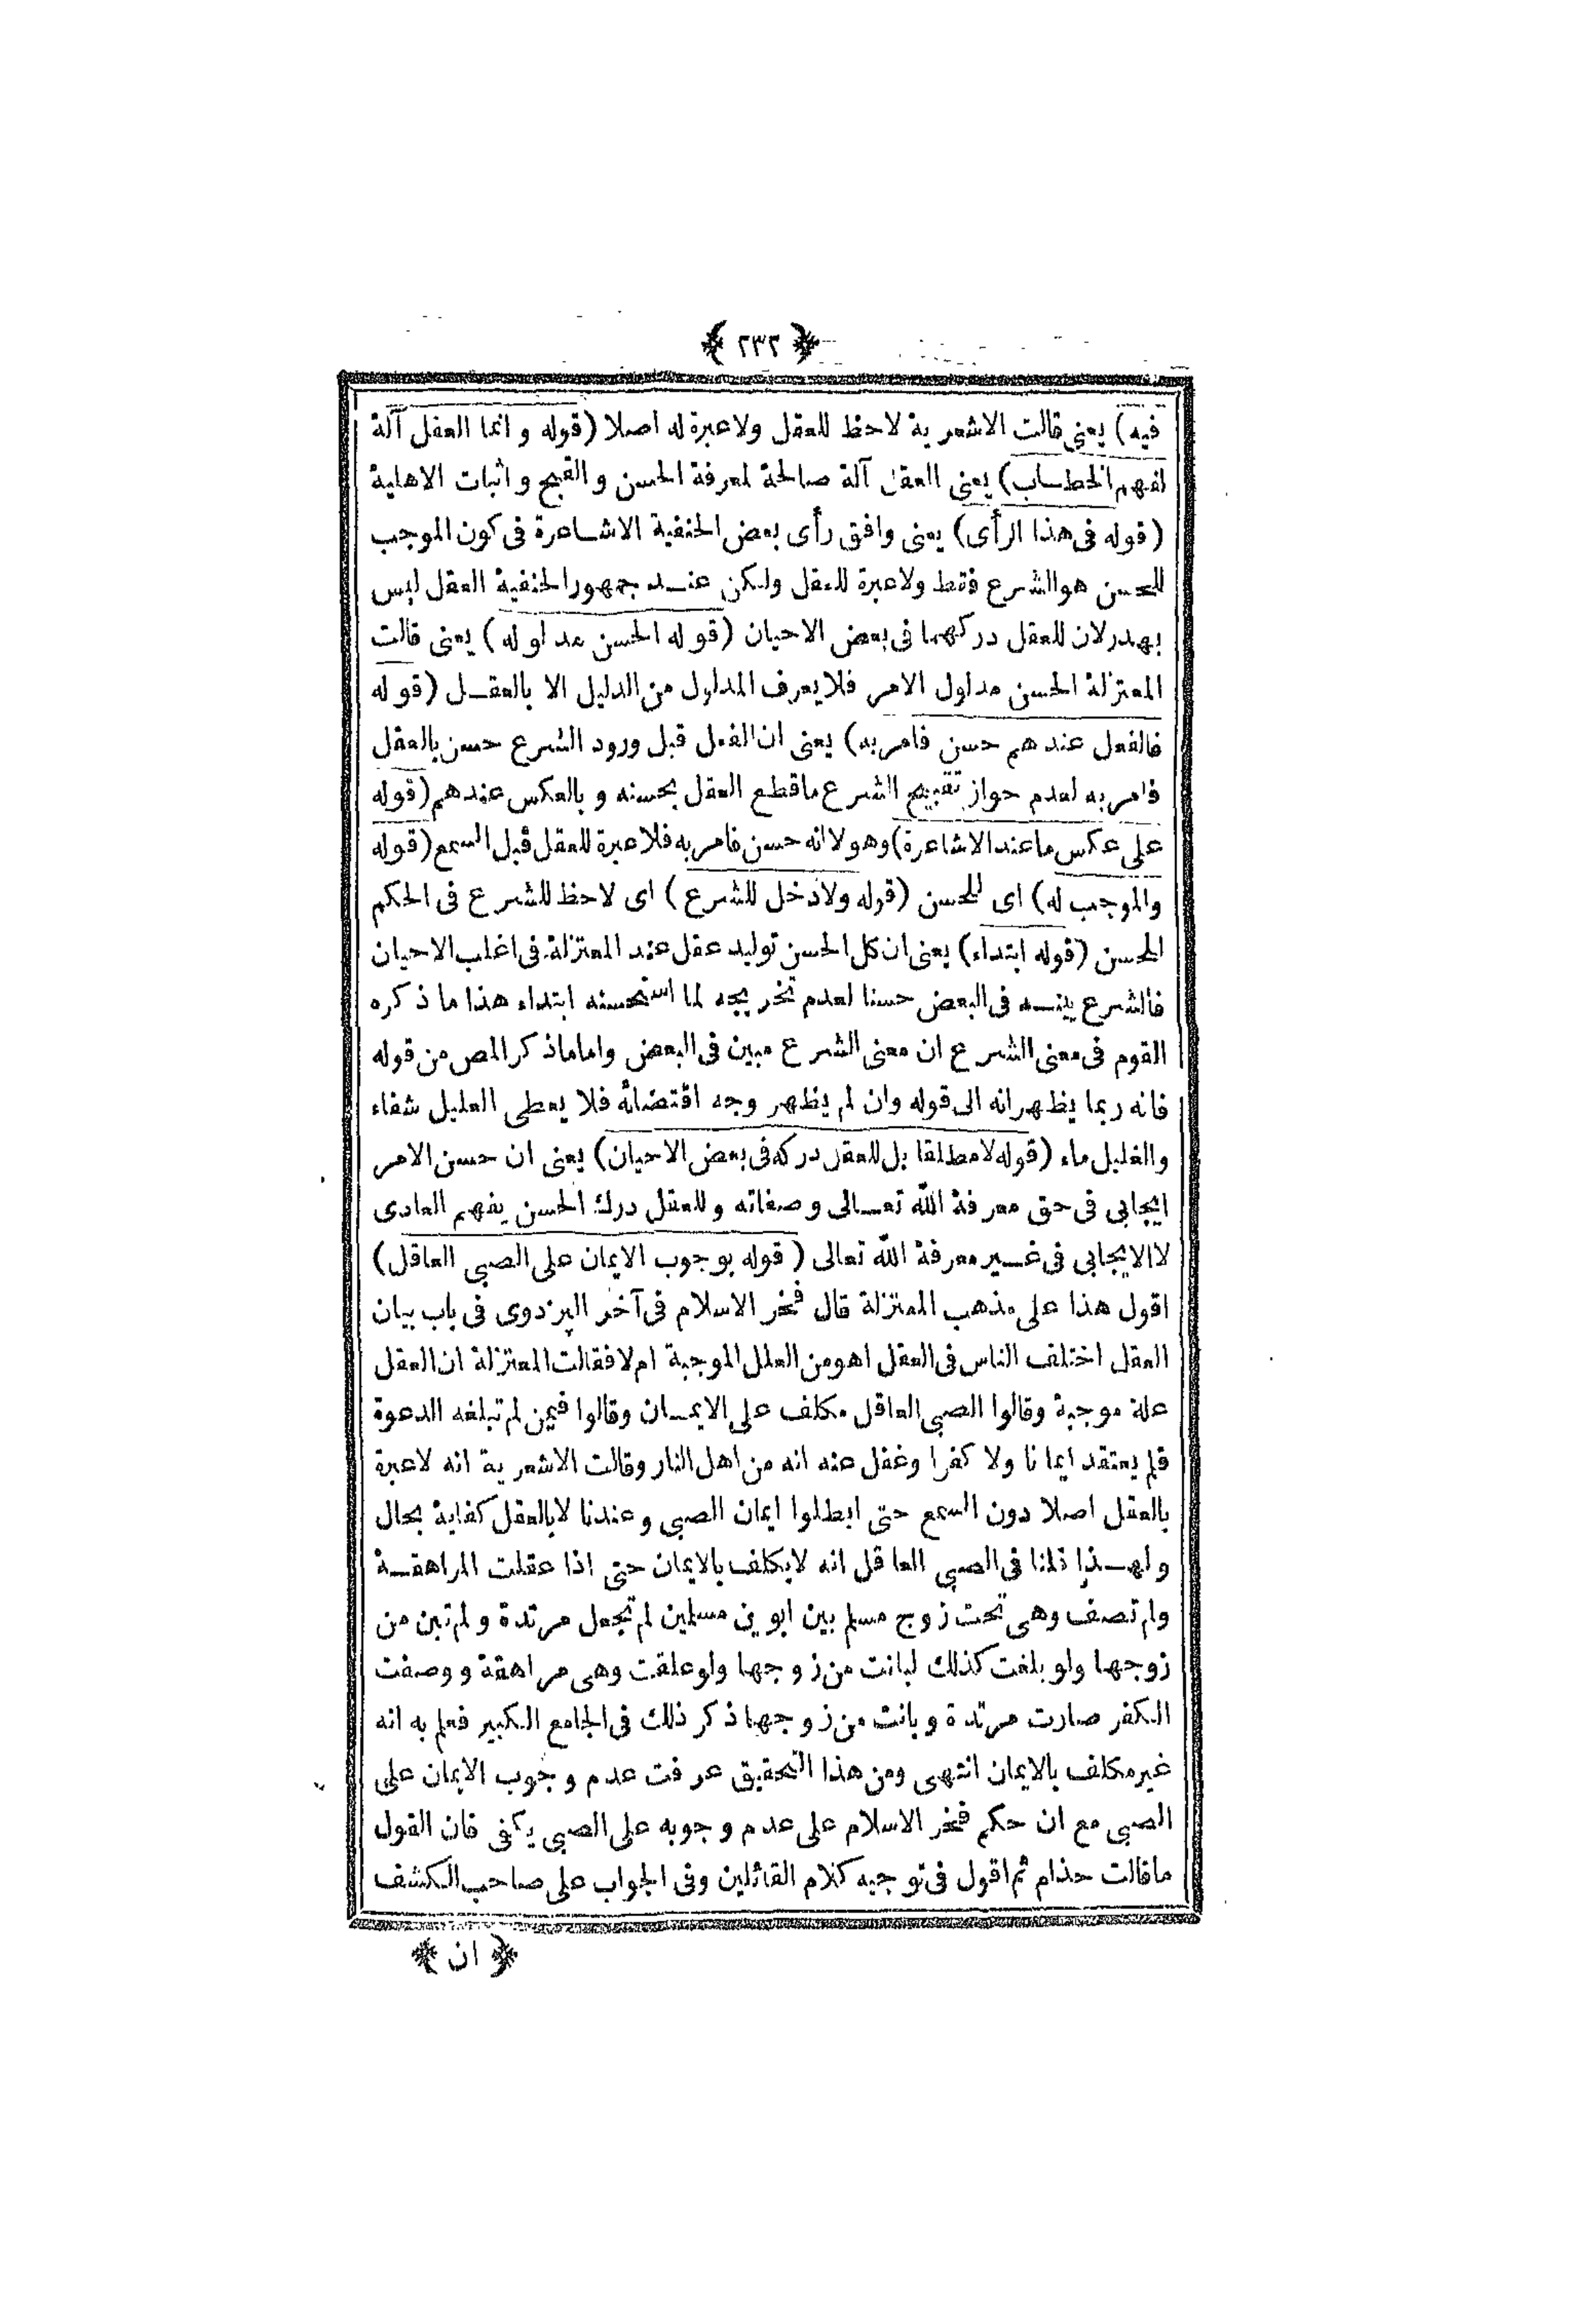 ﴿ ٢٣٢ ﴾
فيه) يعنى قالت الاشعرية لاحظ للعقل ولاعبرة له اصلا (قوله وانما العقل آلة
لفهم الخطاب) يعنى العقل آلة صالحة لمعرفة الحسن والقبح واثبات الاهلية
(قوله فى هذا الرأى) يعنى وافق رأى بعض الحنفية الاشاعرة فى كون الموجب
للحسن هو الشرع فقط ولاعبرة للعقل ولكن عند جمهور الحنفية العقل ليس
بهدر لان للعقل دركهما فى بعض الاحيان (قوله الحسن مدلوله) يعنى قالت
المعتزلة الحسن مدلول الامر فلا يعرف المدلول من الدليل الا بالعقل (قوله
فالفعل عندهم حسن فامر به) يعنى ان الفعل قبل ورود الشرع حسن بالعقل
فامر به لعدم جواز تقبيح الشرع ماقطع العقل بحسنه وبالعكس عندهم (قوله
على عكس ما عند الاشاعرة) وهو لا انه حسن فامر به فلا عبرة للعقل قبل السمع (قوله
والموجب له) اى للحسن (قوله ولا دخل للشرع) اى لاحظ للشرع فى الحكم
الحسن (قوله ابتداء) يعنى ان كل الحسن توليد عقل عند المعتزلة فى اغلب الاحيان
فالشرع بينه فى البعض حسنا لعدم تخريجه لما استحسنه ابتداء هذا ما ذكره
القوم فى معنى الشرع ان معنى الشرع مبين فى البعض واما ماذكر المص من قوله
فانه ربما يظهر انه الى قوله وان لم يظهر وجه اقتضائه فلا يعطى العليل شفاء
والغليل ماء (قوله لا مطلقا بل للعقل دركه فى بعض الاحيان) يعنى ان حسن الامر
ايجابى فى حق معرفة الله تعالى وصفاته وللعقل درك الحسن بفهم العادى
لا الايجابى فى غير معرفة الله تعالى (قوله بوجوب الايمان على الصبى العاقل)
اقول هذا على مذهب المعتزلة قال فخر الاسلام فى آخر البزدوى فى باب بيان
العقل اختلف الناس فى العقل اهو من العلل الموجبة ام لا فقالت المعتزلة ان العقل
علة موجبة وقالوا الصبى العاقل مكلف على الايمان وقالوا فيمن لم تبلغه الدعوة
فلم يعتقد ايمانا ولا كفرا وغفل عنه انه من اهل النار وقالت الاشعرية انه لاعبرة
بالعقل اصلا دون السمع حتى ابطلوا ايمان الصبى وعندنا لا بالعقل كفاية بحال
ولهذا قلنا فى الصبى العاقل انه لايكلف بالايمان حتى اذا عقلت المراهقة
ولم تصف وهى تحت زوج مسلم بين ابوين مسلمين لم تجعل مرتدة ولم تبن من
زوجها ولو بلغت كذلك لبانت من زوجها ولو علقت وهى مراهقة ووصفت
الكفر صارت مرتدة وبانت من زوجها ذكر ذلك فى الجامع الكبير فعلم به انه
غير مكلف بالايمان انتهى ومن هذا التحقيق عرفت عدم وجوب الايمان على
الصبى مع ان حكم فخر الاسلام على عدم وجوبه على الصبى يكفى فان القول
ماقالت حذام ثم اقول فى توجيه كلام القائلين وفى الجواب على صاحب الكشف
﴿ ان ﴾